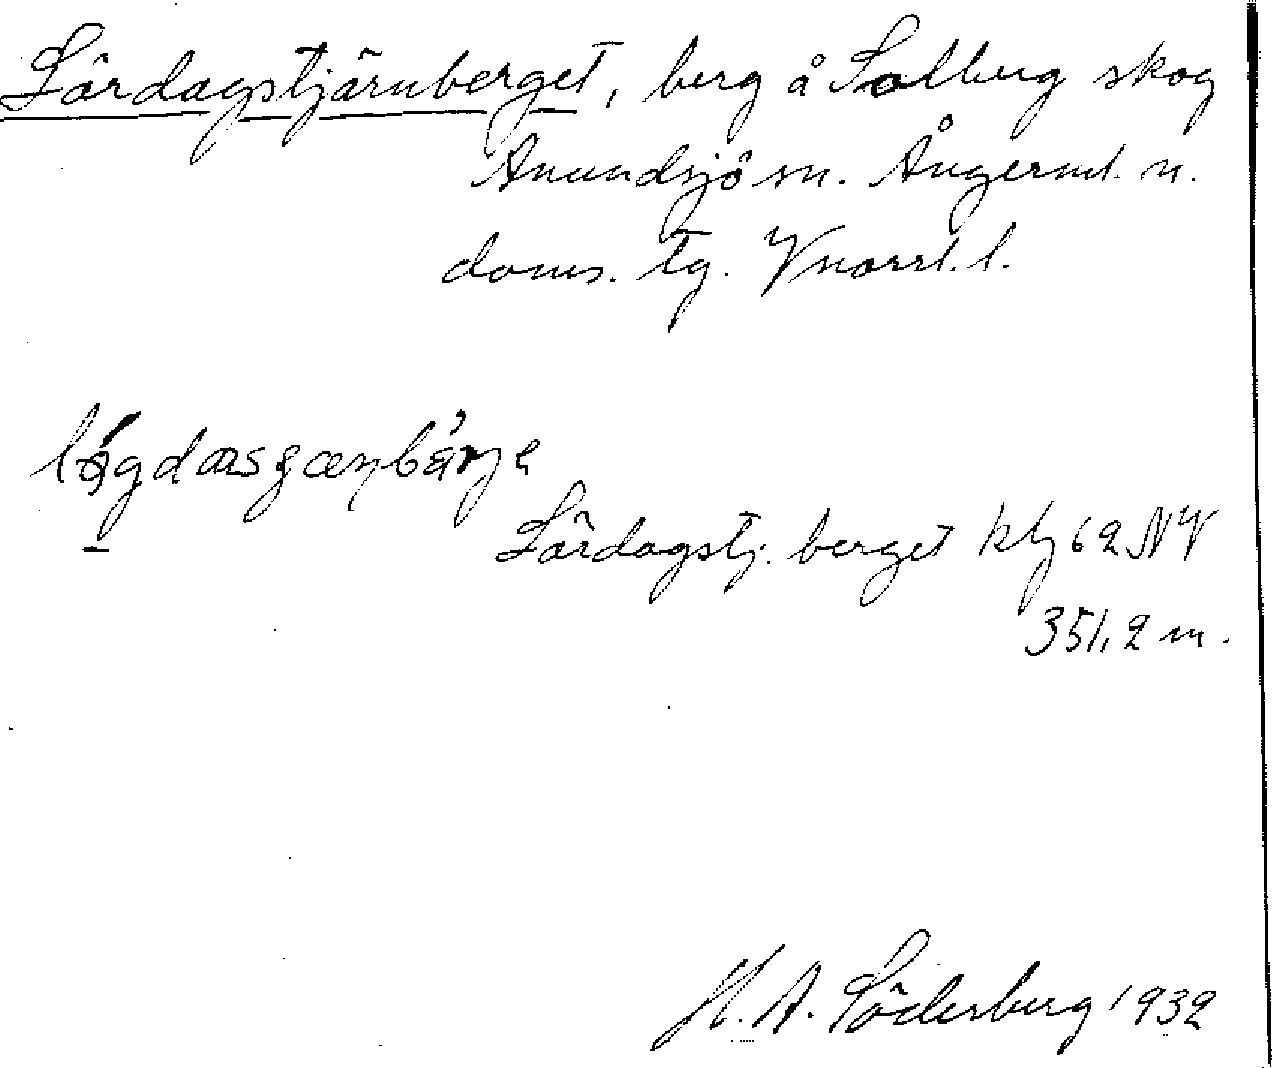 Lördagstjärnberget, berg å Solberg skog
Anundsjö sn. Ångerml. n.
doms. tg. Vnorrl. l.
Lördagstj. berget kbl 62 NV
351,2 m.
H. A. Söderberg 1932